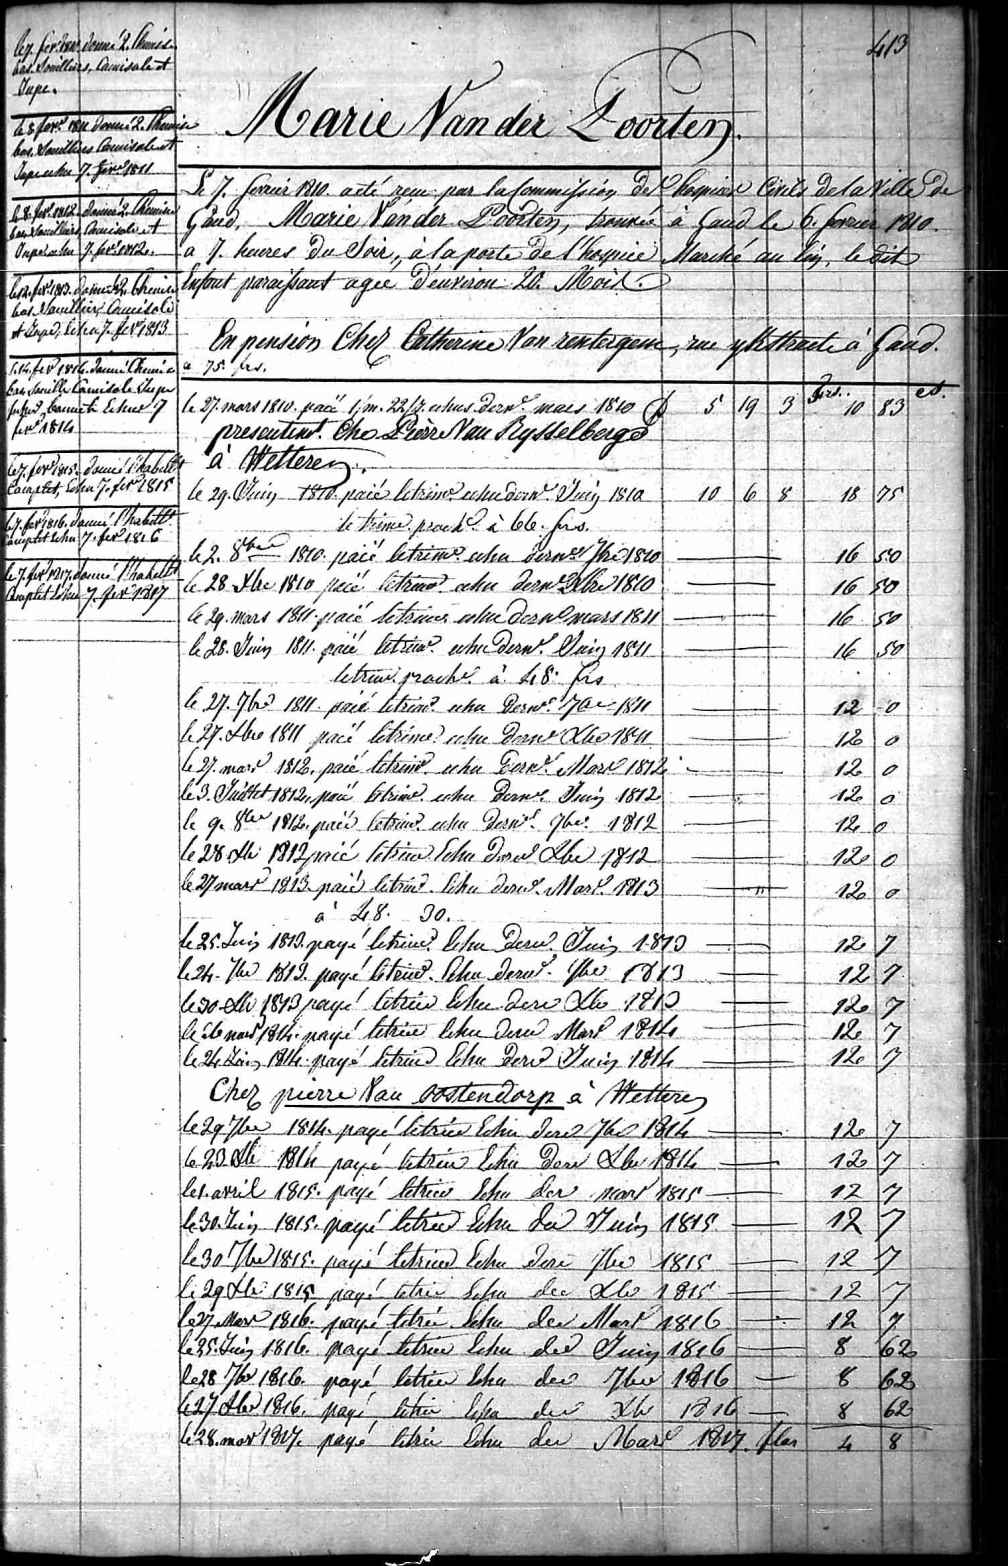 413
Marie Van der Poorten.
le 7. fevr. donné 2. Chemise
bas. Souilliers, Camisole et
Jupe.
le 8. fevr. 1811 donné 2. Chemise
bas. Souilliers Camisole et
Jupe echu 7. fevr 1811
le 8. fevr. 1812. donné 2. Chemise
bas. Souilliers, Camisole et
Jupe echu 7. fevr. 1812.
fevr. 1813. donné 2. Chemise
bas. Souilliers Camisole
et Jupe, Echu 7. fevr 1813
fevr 1814. donné Chemise
bas. Souilliers Camisole Jupe
Echue 7
fevr 1814
le 7. fevr 1815. donné l'habillt
Complet, Echu 7. fevr 1815
le 7. fevr 1816. donné l'habillt
complet echu 7. fevr 1816
le 7. fevr 1817. donné l'habillt
Complet Echu 7. fevr 1817
Le 7. fevrier 1810. acté reçu par la Commission des hospices Civils de la Ville de
Gand, Marie Van der Poorten, trouvée à Gand le 6. fevrier 1810.
a 7. heures du Soir, à la porte de l'hospice Marché au lin, le dit
Enfant paraissant agée d'environ 20. Mois.
En pension Chez Catherine Van rentergem, rue à Gand.
a 75. frs.
frs. ct.
le 27. mars 1810. paié 1/m. 22/J. echus dernr. mars 1810 £ 5 19 3 10 83
presentemt. Chez Pierre Van Rysselberge
à Wetteren.
le 29. Juin 1810. paié letrimr. echu dernr. Juin 1810 10 6 8 18 75
le trimr. prochr. à 66. frs.
le 2. 8bre 1810. paié letrimr. echu dernr. 7bre 1810 16 50
le 28. Xbre 1810 paié letrimr. echu dernr Xbre 1810 16 50
le 29. mars 1811. paié letrimr. echu dernr mars 1811 16 50
le 28. Juin 1811. paié letrimr. echu Dernr. Juin 1811 16 50
letrimr. prochr. à 48. frs
le 27. 7bre 1811. paié letrimr. echu Dernr. 7bre 1811 12 0
le 27. Xbre 1811 paié letrimr. echu dernr Xbre 1811 12 0
le 27. mars 1812. paié letrimr. echu Dernr. Mars 1812 12 0
le 3. Juillet 1812. paié letrimr. echu Dernr. Juin 1812 12 0
le 9. 8bre 1812. paié letrimr. echu dernr. 7bre. 1812 12 0
le 28 Xbr 1812 paié letrimr Echu dernr Xbre 1812 12 0
le 27 mars 1813. paié letrimr. Echu dernr. Mars. 1813 12 0
à 48. 30.
le 25. Juin 1813. payé letrimr. Echu Dernr. Juin 1813 12 7
le 24. 7bre 1813. payé letrimr. Echu dernr. 7bre 1813 12 7
le 30 Xbr 1813 payé letrim Echu dern Xbr 1813 12 7
le 26 mars 1814. payé letrim Echu dern Mars 1814 12 7
le 24 Juin 1814. payé letrim Echu Dern Juin 1814 12 7
Chez pierre Van oostendorp à Wetteren
le 29 7bre 1814. payé letrim Echu dern 7br 1814 12 7
le 23 Xbr 1814 payé letrim Echu Dern Xbr 1814 12 7
le 1. avril 1815. payé letrim Echu der mars 1815 12 7
le 30. Juin 1815. payé letrim Echu der Juin 1815 12 7
le 30 7bre 1815. payé letrim Echu dern 7bre 1815 12 7
le 29 Xbr 1815. payé letrim Echu der Xbr 1815 12 7
le 27. Mars 1816. payé letrim Echu der Mars 1816 12 7
le 25. Juin 1816. payé letrim Echu der Juin 1816 8 62
le 28 7br 1816. payé letrim Echu der 7bre 1816 8 62
le 27 Xbr 1816. payé letrim Echu der Xbr 1816 8 62
le 28. mars 1817. payé letrim Echu der Mars 1817. flor 4 8